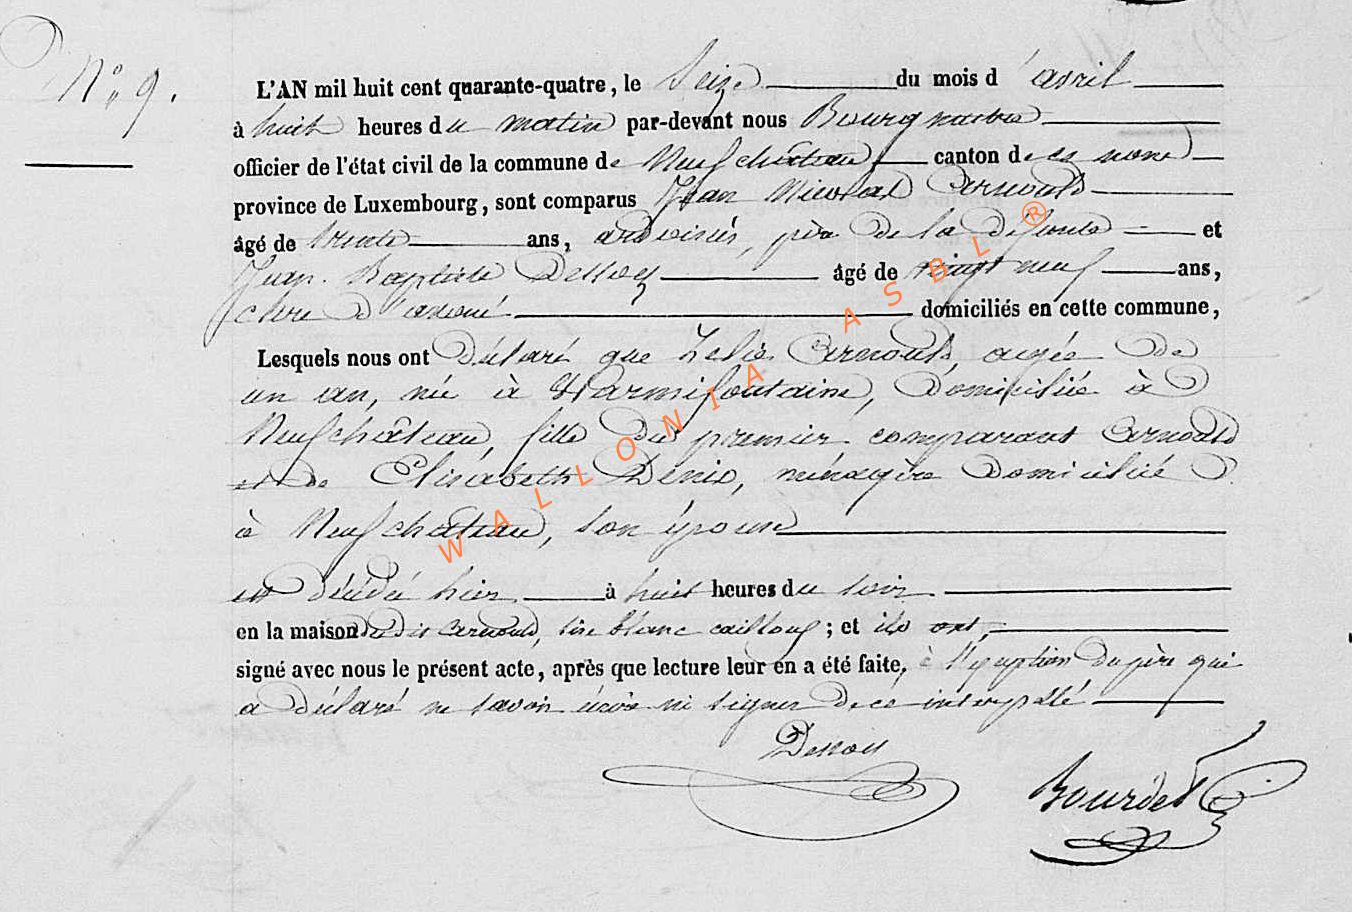 N° 9.
L'AN mil huit cent quarante-quatre, le Seize du mois d'avril
à huit heures du matin par-devant nous Bourgmestre
officier de l'état civil de la commune de Neufchâteau canton de ce nom
province de Luxembourg, sont comparus Jean Nicolas Arnould
âgé de trente ans, ardoisier, père de la défunte et
Jean Baptiste Dessoy âgé de vingt neuf ans,
clerc d'avoué domiciliés en cette commune,
Lesquels nous ont déclaré que Zelie Arnould, agée de
un an, née à Warmifontaine, domiciliée à
Neufchâteau, fille du premier comparant Arnould
et de Elisabeth Denis, ménagère domiciliée
à Neufchâteau, son épouse
est décédé hier à huit heures du soir
en la maison du dit Arnould, sise blanc caillou ; et ils ont,
signé avec nous le présent acte, après que lecture leur en a été faite, à l'exception du père qui
a déclaré ne savoir écrire ni signer de ce interpellé
Dessoy
Bourdet
WALLONIA ASBL ®